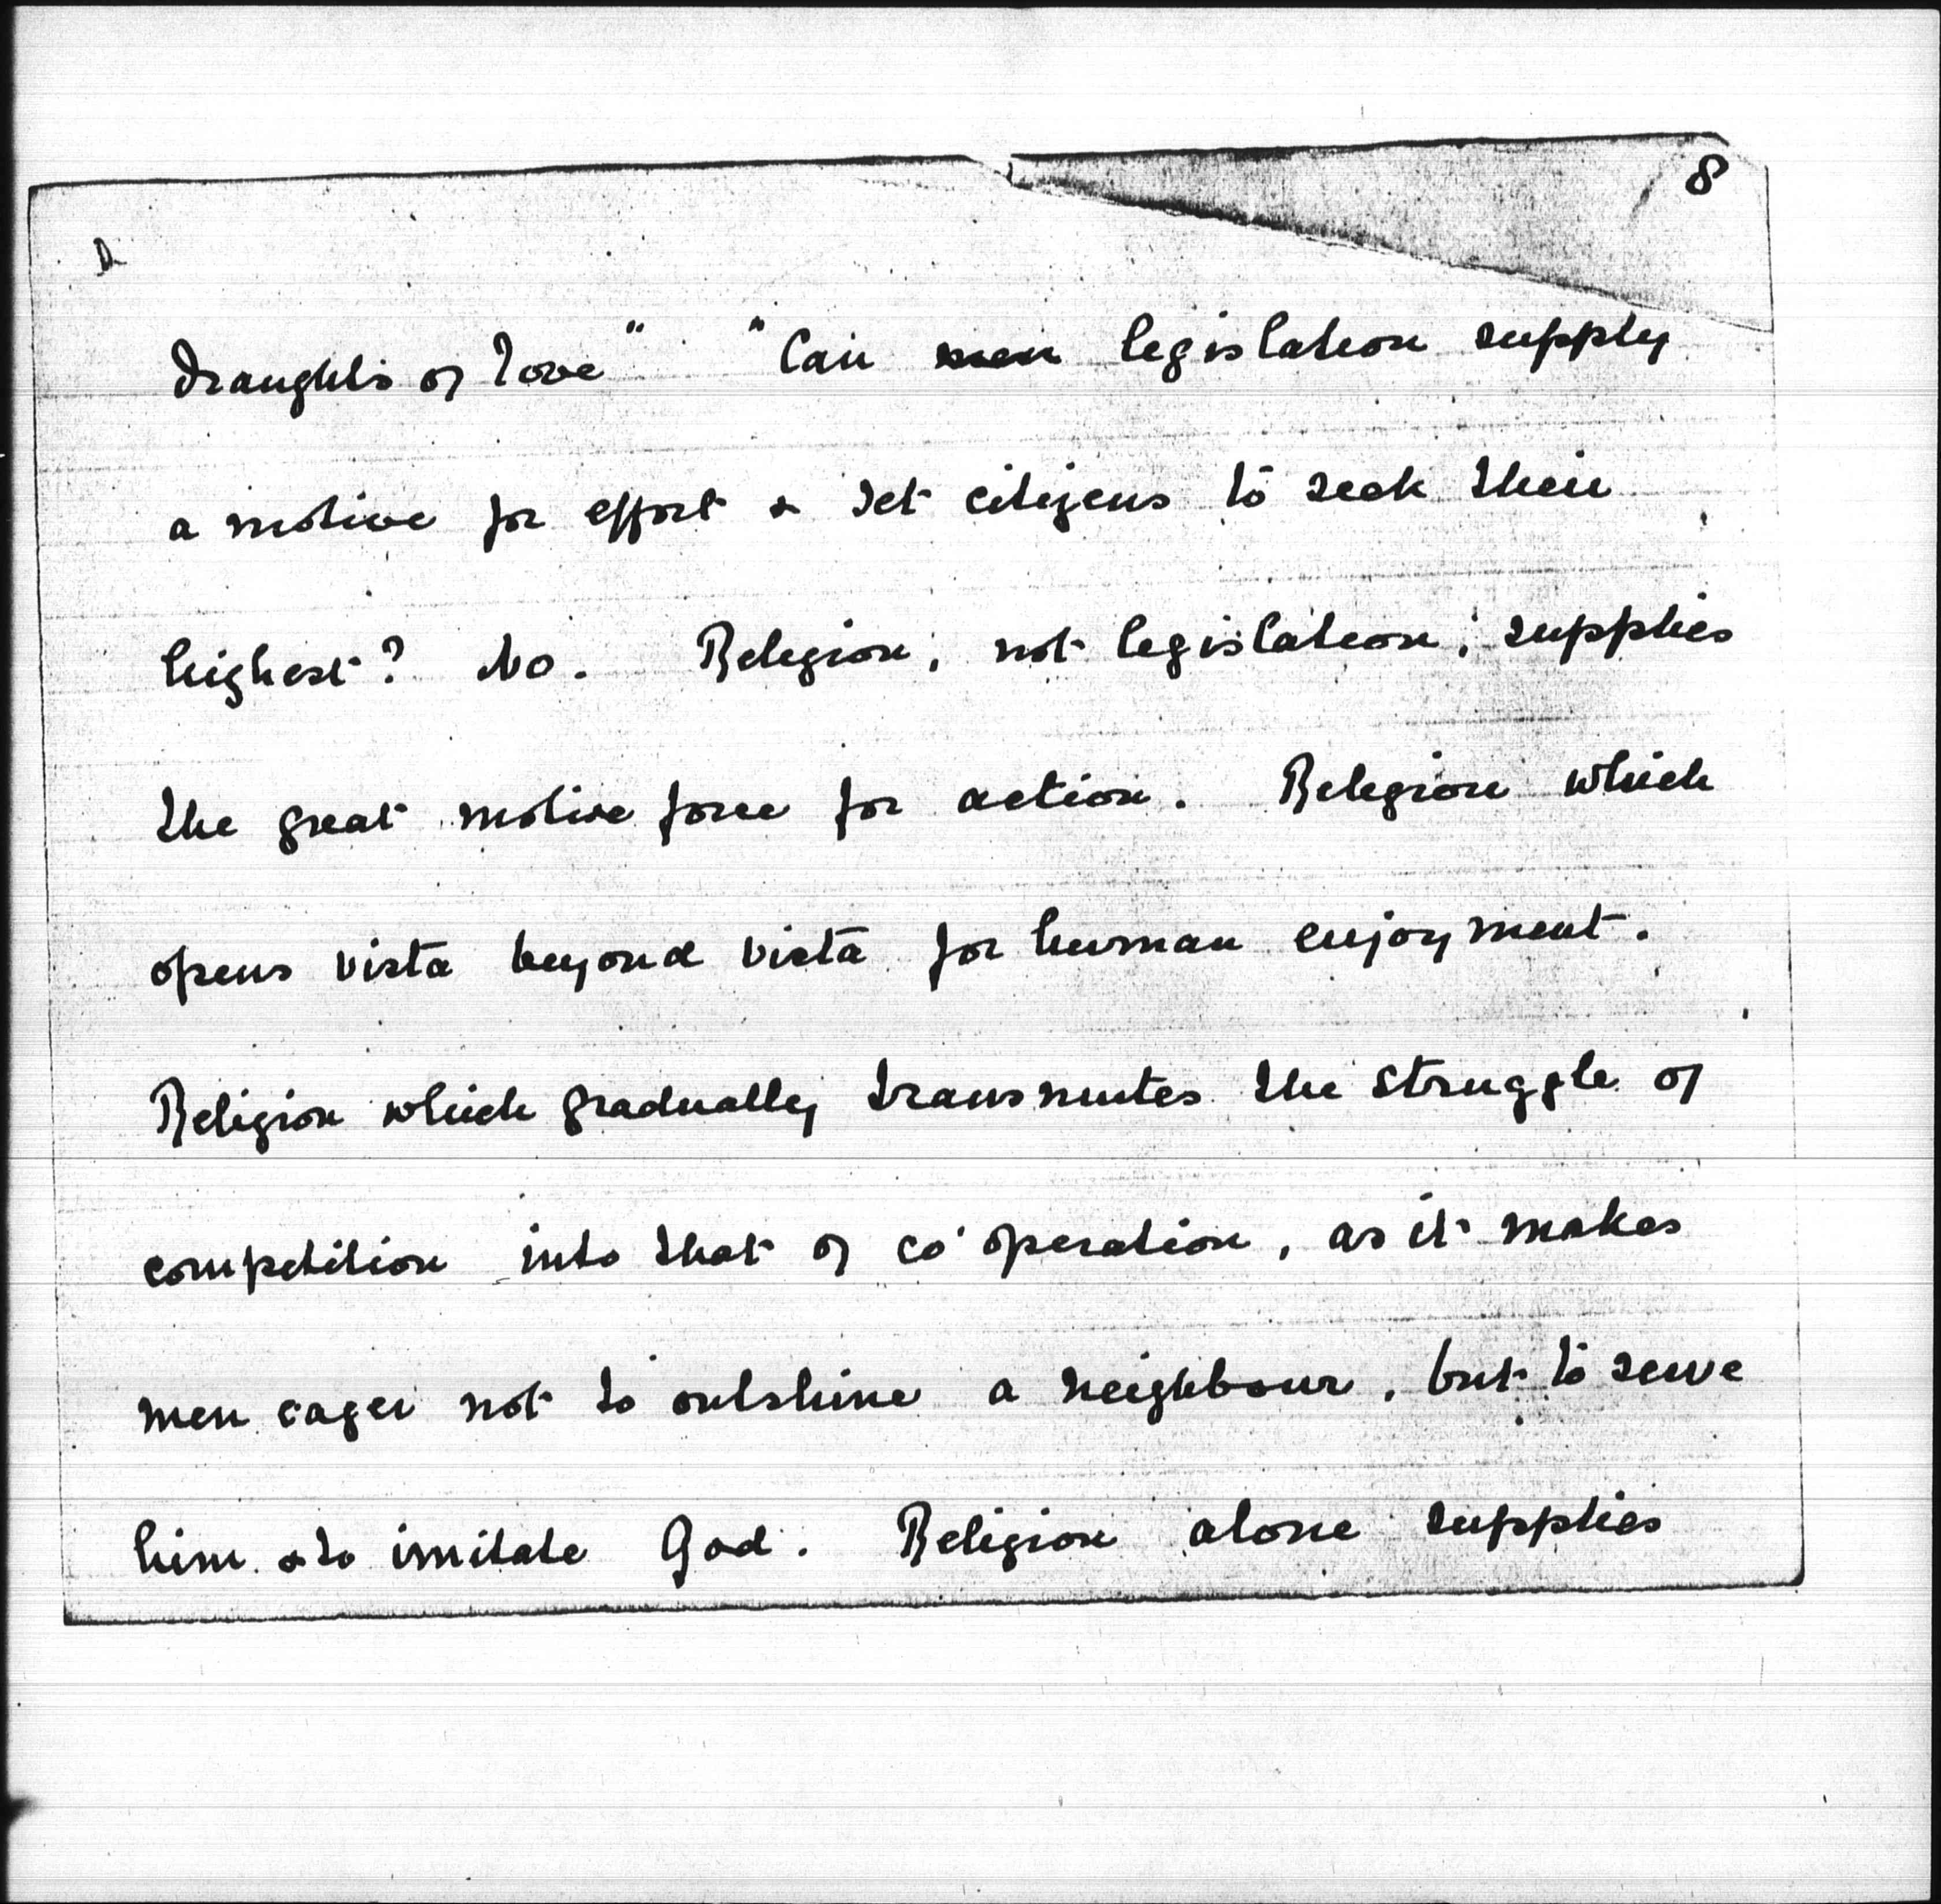 8
D
draughts of love" "Can men legislation supply
a motive for effort & set citizens to seek their
highest? No. Religion, not legislation, supplies
the great motive force for action. Religion which
opens vista beyond vista for human enjoyment.
Religion which gradually transmutes the struggle of
competition into that of co'operation, as it makes
men eager not to outshine a neighbour, but to serve
him & to imitate God. Religion alone supplies